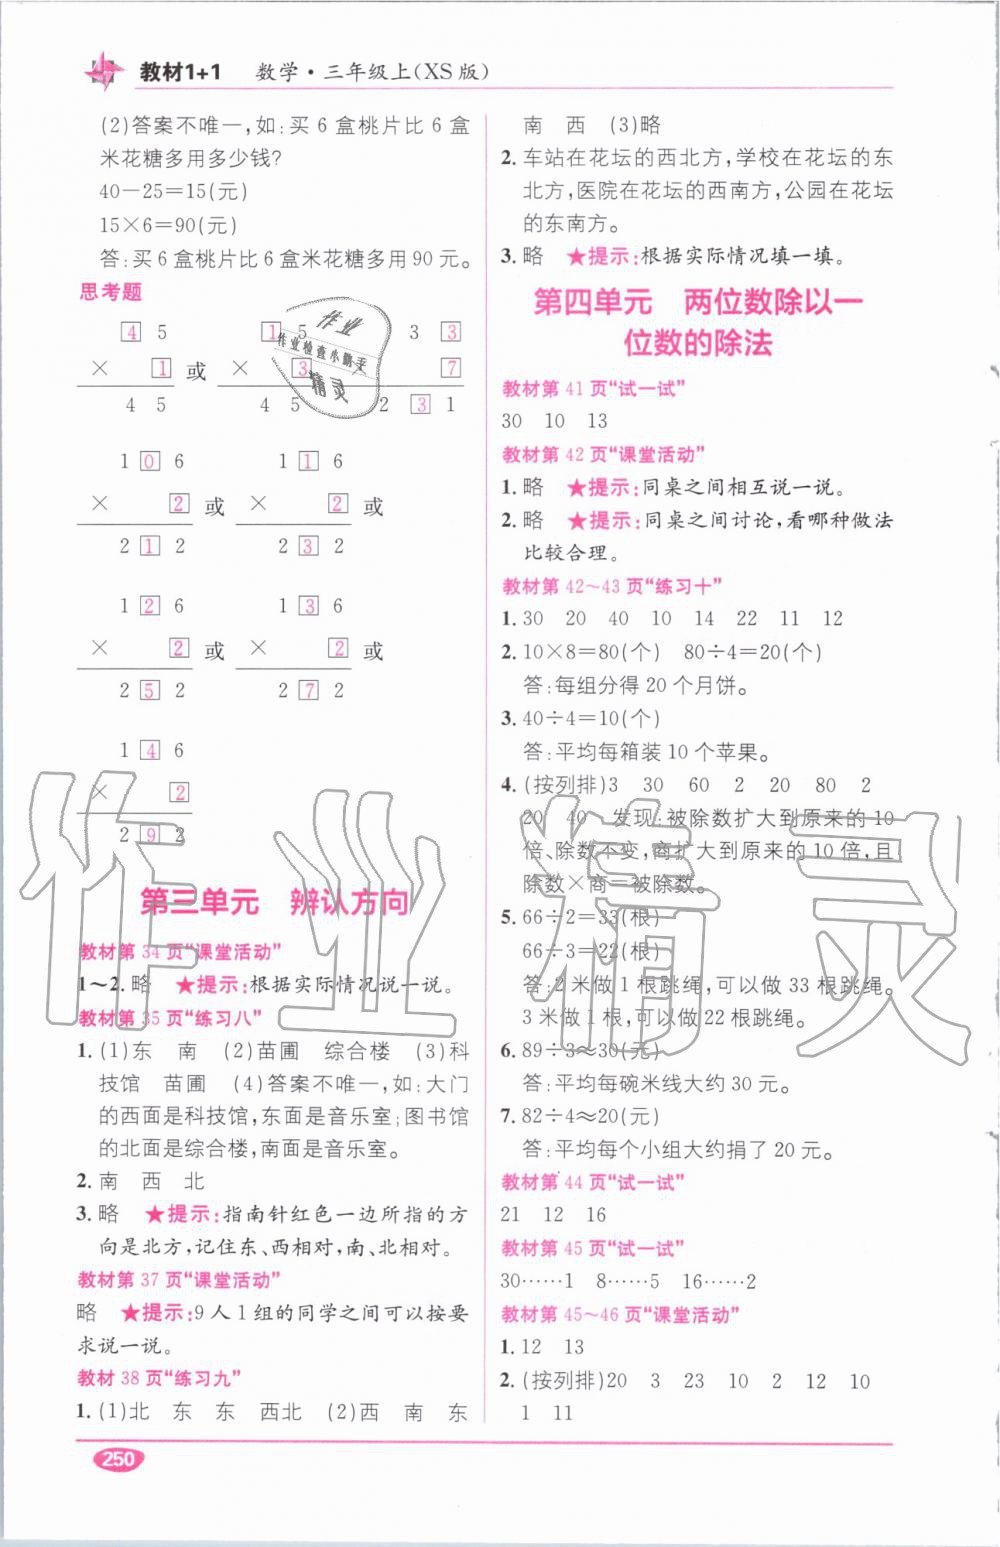 教材1+1 数学·三年级上(XS版)
(2)答案不唯一,如:买6盒桃片比6盒
米花糖多用多少钱?
40-25=15(元)
15×6=90(元)
答:买6盒桃片比6盒米花糖多用90元。
思考题
4 5 1 5 3 3
× 1 或 × 3 7
4 5 4 5 2 3 1
1 0 6 1 1 6
× 2 或 × 2 或
2 1 2 2 3 2
1 2 6 1 3 6
× 2 或 × 2 或
2 5 2 2 7 2
1 4 6
× 2
2 9 2
第三单元 辨认方向
教材第34页“课堂活动”
1~2.略 ★提示:根据实际情况说一说。
教材第35页“练习八”
1.(1)东 南 (2)苗圃 综合楼 (3)科
技馆 苗圃 (4)答案不唯一,如:大门
的西面是科技馆,东面是音乐室;图书馆
的北面是综合楼,南面是音乐室。
2.南 西 北
3.略 ★提示:指南针红色一边所指的方
向是北方,记住东、西相对,南、北相对。
教材第37页“课堂活动”
略 ★提示:9人1组的同学之间可以按要
求说一说。
教材38页“练习九”
1.(1)北 东 东 西北 (2)西 南 东
南 西 (3)略
2.车站在花坛的西北方,学校在花坛的东
北方,医院在花坛的西南方,公园在花坛
的东南方。
3.略 ★提示:根据实际情况填一填。
第四单元 两位数除以一
位数的除法
教材第41页“试一试”
30 10 13
教材第42页“课堂活动”
1.略 ★提示:同桌之间相互说一说。
2.略 ★提示:同桌之间讨论,看哪种做法
比较合理。
教材第42~43页“练习十”
1.30 20 40 10 14 22 11 12
2.10×8=80(个) 80÷4=20(个)
答:每组分得20个月饼。
3.40÷4=10(个)
答:平均每箱装10个苹果。
4.(按列排)3 30 60 2 20 80 2
20 40 发现:被除数扩大到原来的10
倍、除数不变,商扩大到原来的10倍,且
除数×商=被除数。
5.66÷2=33(根)
66÷3=22(根)
答:2米做1根跳绳,可以做33根跳绳。
3米做1根,可以做22根跳绳。
6.89÷3≈30(元)
答:平均每碗米线大约30元。
7.82÷4≈20(元)
答:平均每个小组大约捐了20元。
教材第44页“试一试”
21 12 16
教材第45页“试一试”
30……1 8……5 16……2
教材第45~46页“课堂活动”
1.12 13
2.(按列排)20 3 23 10 2 12 10
1 11
250
作业
作业检查小助手
精灵
作业精灵